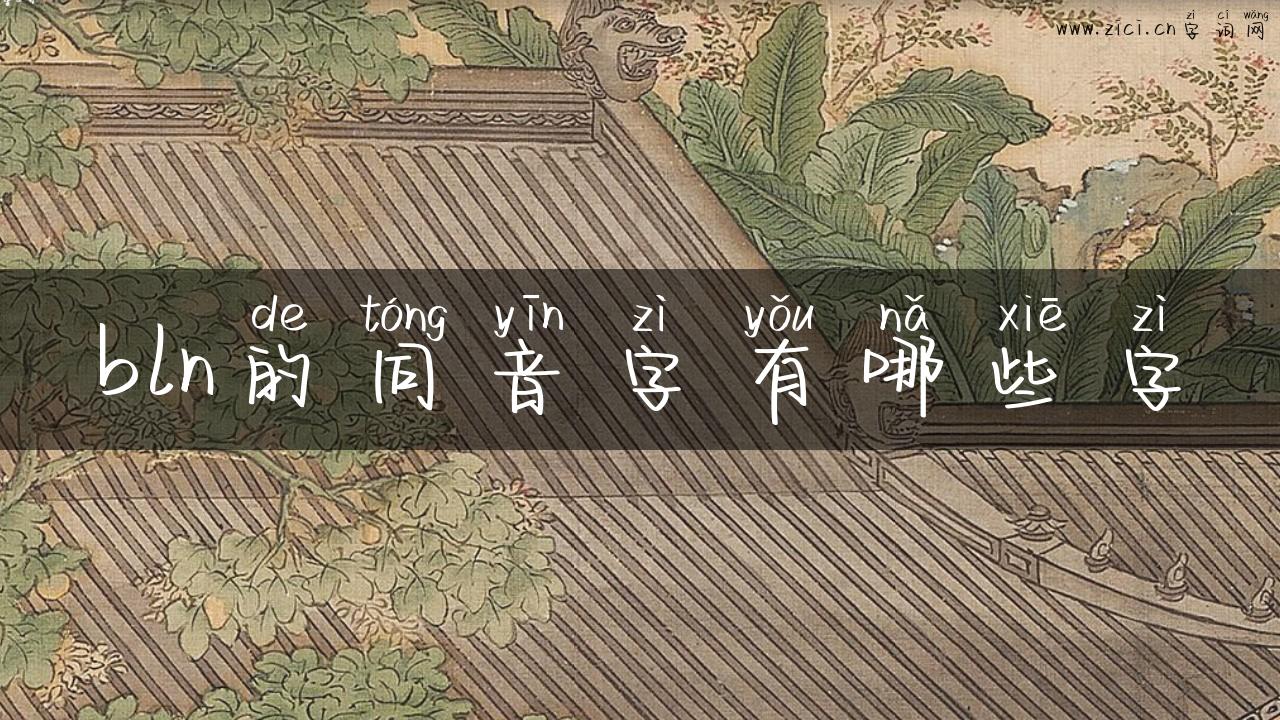 www.zici.cn 字词网
zì cí wǎng
de tóng yīn zì yǒu nǎ xiē zì
bln 的同音字有哪些字